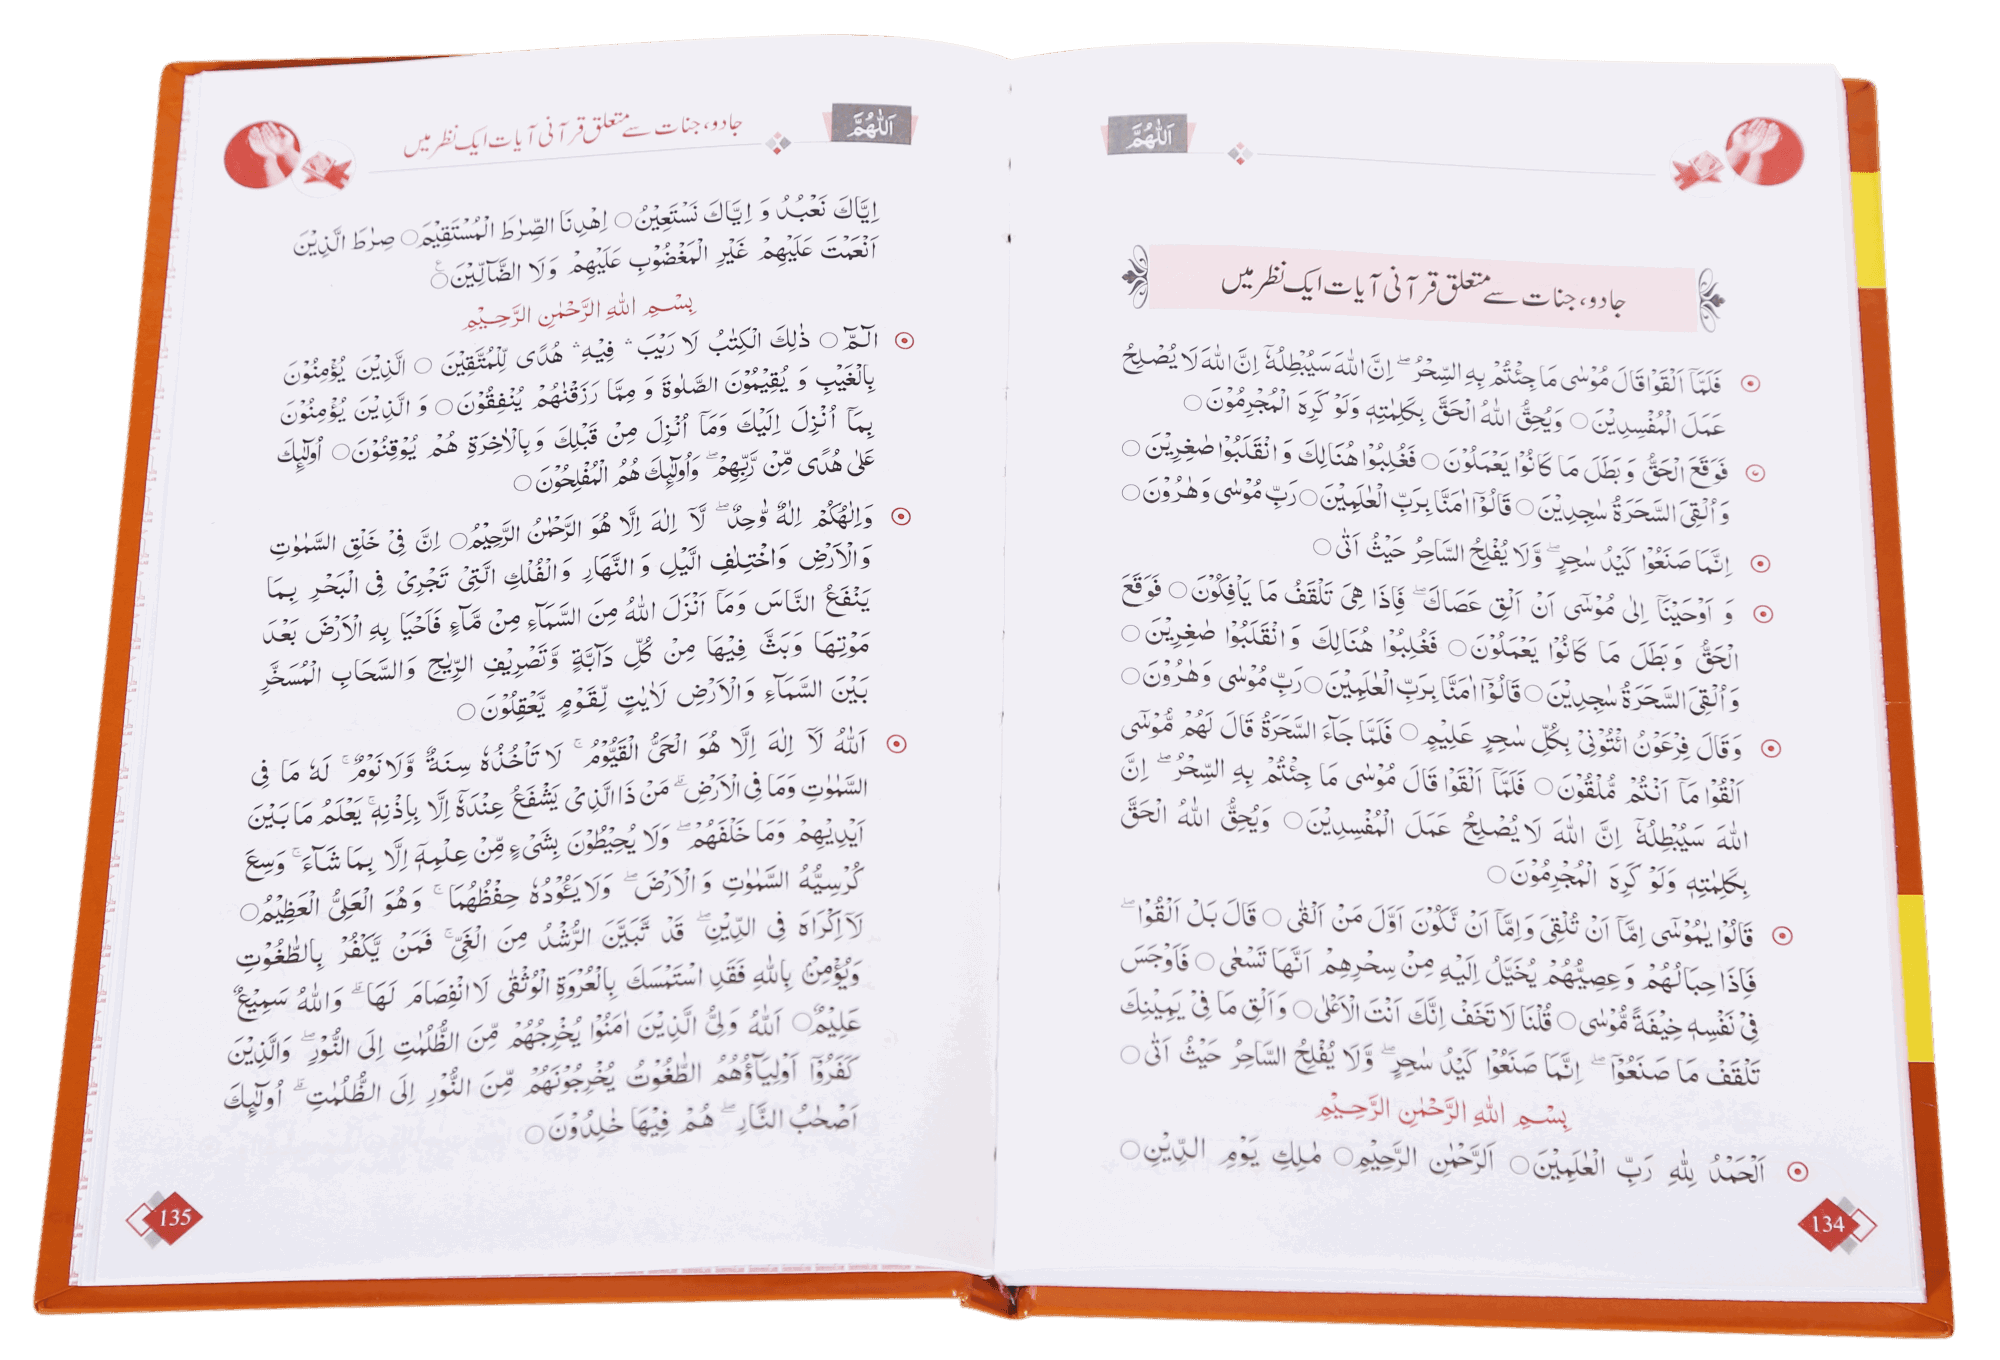 اَللّٰهُمَّ
جادو، جنات سے متعلق قرآنی آیات ایک نظر میں
فَلَمَّاۤ اَلْقَوْا قَالَ مُوْسٰى مَا جِئْتُمْ بِهِ السِّحْرُ ۖ اِنَّ اللّٰهَ سَيُبْطِلُهٗ ۤ اِنَّ اللّٰهَ لَا يُصْلِحُ
عَمَلَ الْمُفْسِدِيْنَ ○ وَيُحِقُّ اللّٰهُ الْحَقَّ بِكَلِمٰتِهٖ وَلَوْ كَرِهَ الْمُجْرِمُوْنَ ○
فَوَقَعَ الْحَقُّ وَ بَطَلَ مَا كَانُوْا يَعْمَلُوْنَ ○ فَغُلِبُوْا هُنَالِكَ وَ انْقَلَبُوْا صٰغِرِيْنَ ○
وَ اُلْقِيَ السَّحَرَةُ سٰجِدِيْنَ ○ قَالُوْۤا اٰمَنَّا بِرَبِّ الْعٰلَمِيْنَ ○ رَبِّ مُوْسٰى وَ هٰرُوْنَ ○
اِنَّمَا صَنَعُوْا كَيْدُ سٰحِرٍ ۖ وَّلَا يُفْلِحُ السَّاحِرُ حَيْثُ اَتٰى ○
وَ اَوْحَيْنَاۤ اِلٰى مُوْسٰۤى اَنْ اَلْقِ عَصَاكَ ۖ فَاِذَا هِيَ تَلْقَفُ مَا يَاْفِكُوْنَ ○ فَوَقَعَ
الْحَقُّ وَ بَطَلَ مَا كَانُوْا يَعْمَلُوْنَ ○ فَغُلِبُوْا هُنَالِكَ وَ انْقَلَبُوْا صٰغِرِيْنَ ○
وَ اُلْقِيَ السَّحَرَةُ سٰجِدِيْنَ ○ قَالُوْۤا اٰمَنَّا بِرَبِّ الْعٰلَمِيْنَ ○ رَبِّ مُوْسٰى وَ هٰرُوْنَ ○
وَقَالَ فِرْعَوْنُ ائْتُوْنِيْ بِكُلِّ سٰحِرٍ عَلِيْمٍ ○ فَلَمَّا جَآءَ السَّحَرَةُ قَالَ لَهُمْ مُّوْسٰۤى
اَلْقُوْا مَاۤ اَنْتُمْ مُّلْقُوْنَ ○ فَلَمَّاۤ اَلْقَوْا قَالَ مُوْسٰى مَا جِئْتُمْ بِهِ السِّحْرُ ۖ اِنَّ
اللّٰهَ سَيُبْطِلُهٗ ۤ اِنَّ اللّٰهَ لَا يُصْلِحُ عَمَلَ الْمُفْسِدِيْنَ ○ وَيُحِقُّ اللّٰهُ الْحَقَّ
بِكَلِمٰتِهٖ وَلَوْ كَرِهَ الْمُجْرِمُوْنَ ○
قَالُوْا يٰمُوْسٰۤى اِمَّاۤ اَنْ تُلْقِيَ وَاِمَّاۤ اَنْ نَّكُوْنَ اَوَّلَ مَنْ اَلْقٰى ○ قَالَ بَلْ اَلْقُوْا ۖ
فَاِذَا حِبَالُهُمْ وَ عِصِيُّهُمْ يُخَيَّلُ اِلَيْهِ مِنْ سِحْرِهِمْ اَنَّهَا تَسْعٰى ○ فَاَوْجَسَ
فِيْ نَفْسِهٖ خِيْفَةً مُّوْسٰى ○ قُلْنَا لَا تَخَفْ اِنَّكَ اَنْتَ الْاَعْلٰى ○ وَاَلْقِ مَا فِيْ يَمِيْنِكَ
تَلْقَفْ مَا صَنَعُوْا ۖ اِنَّمَا صَنَعُوْا كَيْدُ سٰحِرٍ ۖ وَّلَا يُفْلِحُ السَّاحِرُ حَيْثُ اَتٰى ○
بِسْمِ اللّٰهِ الرَّحْمٰنِ الرَّحِيْمِ
اَلْحَمْدُ لِلّٰهِ رَبِّ الْعٰلَمِيْنَ ○ الرَّحْمٰنِ الرَّحِيْمِ ○ مٰلِكِ يَوْمِ الدِّيْنِ ○
134
اَللّٰهُمَّ
جادو، جنات سے متعلق قرآنی آیات ایک نظر میں
اِيَّاكَ نَعْبُدُ وَ اِيَّاكَ نَسْتَعِيْنُ ○ اِهْدِنَا الصِّرٰطَ الْمُسْتَقِيْمَ ○ صِرٰطَ الَّذِيْنَ
اَنْعَمْتَ عَلَيْهِمْ غَيْرِ الْمَغْضُوْبِ عَلَيْهِمْ وَلَا الضَّآلِّيْنَ ○
بِسْمِ اللّٰهِ الرَّحْمٰنِ الرَّحِيْمِ
الٓمّٓ ○ ذٰلِكَ الْكِتٰبُ لَا رَيْبَ ۛ فِيْهِ ۛ هُدًى لِّلْمُتَّقِيْنَ ○ الَّذِيْنَ يُؤْمِنُوْنَ
بِالْغَيْبِ وَ يُقِيْمُوْنَ الصَّلٰوةَ وَ مِمَّا رَزَقْنٰهُمْ يُنْفِقُوْنَ ○ وَ الَّذِيْنَ يُؤْمِنُوْنَ
بِمَاۤ اُنْزِلَ اِلَيْكَ وَمَاۤ اُنْزِلَ مِنْ قَبْلِكَ وَبِالْاٰخِرَةِ هُمْ يُوْقِنُوْنَ ○ اُولٰٓئِكَ
عَلٰى هُدًى مِّنْ رَّبِّهِمْ ۖ وَاُولٰٓئِكَ هُمُ الْمُفْلِحُوْنَ ○
وَاِلٰهُكُمْ اِلٰهٌ وّٰحِدٌ ۖ لَاۤ اِلٰهَ اِلَّا هُوَ الرَّحْمٰنُ الرَّحِيْمُ ○ اِنَّ فِيْ خَلْقِ السَّمٰوٰتِ
وَالْاَرْضِ وَاخْتِلٰفِ الَّيْلِ وَ النَّهَارِ وَ الْفُلْكِ الَّتِيْ تَجْرِيْ فِى الْبَحْرِ بِمَا
يَنْفَعُ النَّاسَ وَمَاۤ اَنْزَلَ اللّٰهُ مِنَ السَّمَآءِ مِنْ مَّآءٍ فَاَحْيَا بِهِ الْاَرْضَ بَعْدَ
مَوْتِهَا وَبَثَّ فِيْهَا مِنْ كُلِّ دَآبَّةٍ وَّتَصْرِيْفِ الرِّيٰحِ وَالسَّحَابِ الْمُسَخَّرِ
بَيْنَ السَّمَآءِ وَالْاَرْضِ لَاٰيٰتٍ لِّقَوْمٍ يَّعْقِلُوْنَ ○
اَللّٰهُ لَاۤ اِلٰهَ اِلَّا هُوَ الْحَيُّ الْقَيُّوْمُ ۚ لَا تَاْخُذُهٗ سِنَةٌ وَّلَا نَوْمٌ ۚ لَهٗ مَا فِى
السَّمٰوٰتِ وَمَا فِى الْاَرْضِ ۗ مَنْ ذَا الَّذِيْ يَشْفَعُ عِنْدَهٗۤ اِلَّا بِاِذْنِهٖ ۚ يَعْلَمُ مَا بَيْنَ
اَيْدِيْهِمْ وَمَا خَلْفَهُمْ ۖ وَلَا يُحِيْطُوْنَ بِشَيْءٍ مِّنْ عِلْمِهٖۤ اِلَّا بِمَا شَآءَ ۚ وَسِعَ
كُرْسِيُّهُ السَّمٰوٰتِ وَ الْاَرْضَ ۖ وَلَا يَئُوْدُهٗ حِفْظُهُمَا ۚ وَهُوَ الْعَلِيُّ الْعَظِيْمُ ○
لَاۤ اِكْرَاهَ فِى الدِّيْنِ ۖ قَدْ تَّبَيَّنَ الرُّشْدُ مِنَ الْغَيِّ ۚ فَمَنْ يَّكْفُرْ بِالطَّاغُوْتِ
وَيُؤْمِنْۢ بِاللّٰهِ فَقَدِ اسْتَمْسَكَ بِالْعُرْوَةِ الْوُثْقٰى لَا انْفِصَامَ لَهَا ۗ وَاللّٰهُ سَمِيْعٌ
عَلِيْمٌ ○ اَللّٰهُ وَلِيُّ الَّذِيْنَ اٰمَنُوْا يُخْرِجُهُمْ مِّنَ الظُّلُمٰتِ اِلَى النُّوْرِ ۖ وَالَّذِيْنَ
كَفَرُوْۤا اَوْلِيٰٓؤُهُمُ الطَّاغُوْتُ يُخْرِجُوْنَهُمْ مِّنَ النُّوْرِ اِلَى الظُّلُمٰتِ ۗ اُولٰٓئِكَ
اَصْحٰبُ النَّارِ ۖ هُمْ فِيْهَا خٰلِدُوْنَ ○
135